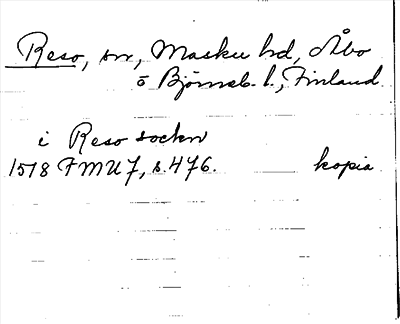 Reso, sn, Masku hd, Åbo
o Björneb. l., Finland
i Reso socken
1518 FMU 7, s. 476. kopia